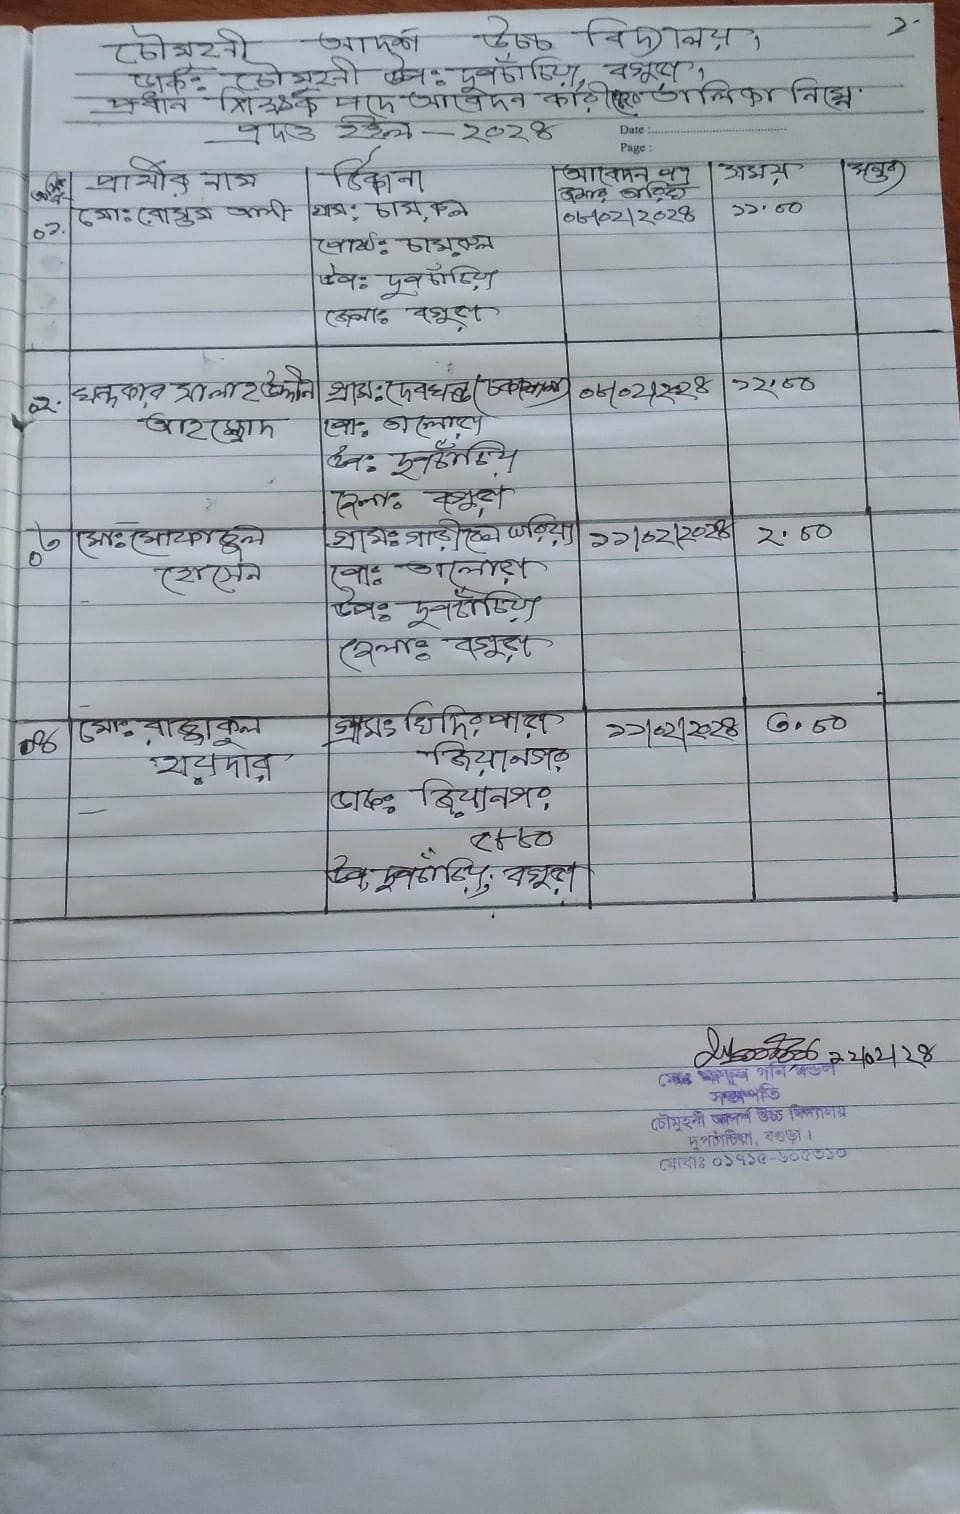 ১.
চৌমুহনী আদর্শ উচ্চ বিদ্যালয়,
ডাক: চৌমুহনী উপ: দুপচাঁচিয়া, বগুড়া,
প্রধান শিক্ষক পদে আবেদন কারীদের তালিকা নিম্নে
প্রদত্ত হইল – ২০২৪
Date :
Page :
প্রার্থীর নাম ঠিকানা আবেদন পত্র জমার তারিখ সময় মন্তব্য
০১. মো: আলী গ্রাম: চামরুল ০৮/০২/২০২৪ ১১.৩০
পোষ্ট: চামরুল
উপ: দুপচাঁচিয়া
জেলা: বগুড়া
০২. খন্দকার সালাহ উদ্দীন গ্রাম: দেবখন্ড ০৮/০২/২০২৪ ১২.৩০
আহম্মেদ পো: তালোড়া
উপ: দুপচাঁচিয়া
জেলা: বগুড়া
০৩ মো: গ্রাম: ১১/০২/২০২৪ ২.৩০
হোসেন পো: তালোড়া
উপ: দুপচাঁচিয়া
জেলা: বগুড়া
০৪ মো: গ্রাম: খিদির পাড়া ১১/০২/২০২৪ ৩.৩০
জিয়ানগর
ডাক: জিয়ানগর
উপ: দুপচাঁচিয়া, বগুড়া
১১/০২/২৪
মোঃ আব্দুল গনি মন্ডল
সভাপতি
চৌমুহনী আদর্শ উচ্চ বিদ্যালয়
দুপচাঁচিয়া, বগুড়া।
মোবাঃ ০১৭১৫-৬০৫৩১০